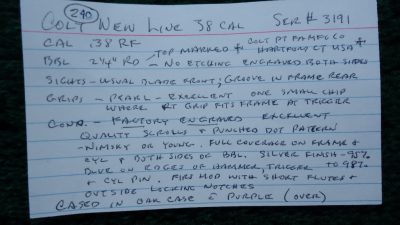 240
COLT NEW LINE 38 CAL SER # 3191
CAL .38 RF
BBL 2¼" RD - TOP MARKED + COLT PT F A MFG CO HARTFORD CT USA +
NO ETCHING ENGRAVED BOTH SIDES
SIGHTS - USUAL BLADE FRONT; GROOVE IN FRAME REAR
GRIPS - PEARL - EXCELLENT ONE SMALL CHIP
WHERE RT GRIP FITS FRAME AT TRIGGER
COND. - FACTORY ENGRAVED EXCELLENT
QUALITY SCROLLS & PUNCHED DOT PATTERN
- NIMSKY OR YOUNG. FULL COVERAGE ON FRAME &
CYL & BOTH SIDES OF BBL. SILVER FINISH - 95%
BLUE ON EDGES OF HAMMER, TRIGGER TO 98%
& CYL PIN. FIRST MOD WITH SHORT FLUTES &
OUTSIDE LOCKING NOTCHES
CASED IN OAK CASE & PURPLE (OVER)